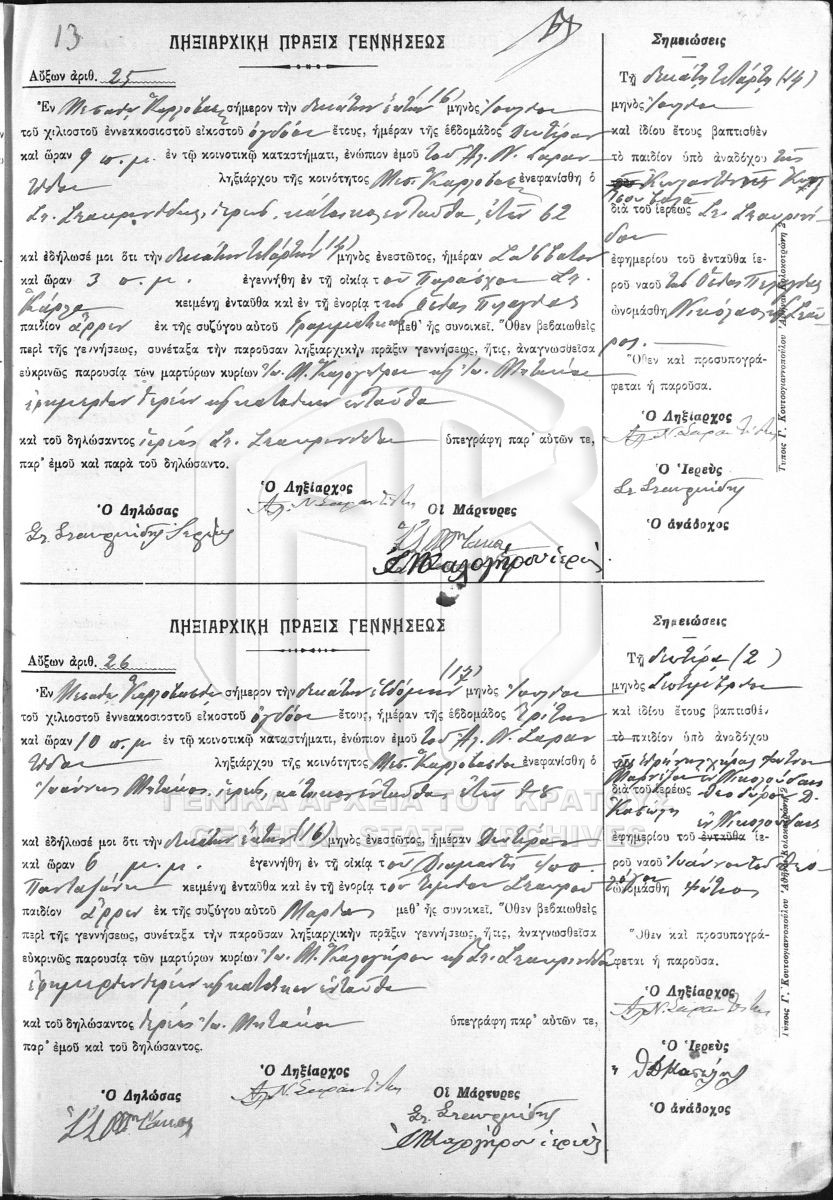 13
ΛΗΞΙΑΡΧΙΚΗ ΠΡΑΞΙΣ ΓΕΝΝΗΣΕΩΣ
Αὔξων ἀριθ. 25
Ἐν Μεσαίῳ Καρλοβάσῳ σήμερον τὴν δεκάτην ἕκτην (16) μηνὸς Ἰουλίου
τοῦ χιλιοστοῦ ἐννεακοσιοστοῦ εἰκοστοῦ ὀγδόου ἔτους, ἡμέραν τῆς ἑβδομάδος Δευτέραν
καὶ ὥραν 9 π.μ. ἐν τῷ κοινοτικῷ καταστήματι, ἐνώπιον ἐμοῦ τοῦ Ἀλ. Ν. Σαραν
τίδου ληξιάρχου τῆς κοινότητος Μεσ. Καρλοβάσου ἐνεφανίσθη ὁ
Στ. Σταυρινίδης, ἱερεύς, κάτοικος ἐνταῦθα, ἐτῶν 62
καὶ ἐδήλωσέ μοι ὅτι τὴν δεκάτην τετάρτην (14) μηνὸς ἐνεστῶτος, ἡμέραν Σάββατον
καὶ ὥραν 3 π.μ. ἐγεννήθη ἐν τῇ οἰκίᾳ τοῦ Παράσχου Στ.
κειμένῃ ἐνταῦθα καὶ ἐν τῇ ἐνορίᾳ τῆς Ὁσίας Πελαγίας
παιδίον ἄρρεν ἐκ τῆς συζύγου αὐτοῦ Γραμματικῆς μεθ' ἧς συνοικεῖ. Ὅθεν βεβαιωθεὶς
περὶ τῆς γεννήσεως, συνέταξα τὴν παροῦσαν ληξιαρχικὴν πρᾶξιν γεννήσεως, ἥτις, ἀναγνωσθεῖσα
εὐκρινῶς παρουσίᾳ τῶν μαρτύρων κυρίων Ἰω. Μ. Καλογήρου κ Ἰω. Μητάκου
ἐφημερίων ἱερέων κ κατοίκων ἐνταῦθα
καὶ τοῦ δηλώσαντος ἱερέως Στ. Σταυρινίδου ὑπεγράφη παρ' αὐτῶν τε,
παρ' ἐμοῦ καὶ παρὰ τοῦ δηλώσαντο.
Ὁ Ληξίαρχος
Ὁ Δηλώσας
Ἀλ. Ν. Σαραντίδης
Οἱ Μάρτυρες
Στ. Σταυρινίδης Ἱερεύς
Ἰ. Μητάκος
Ἰ. Μ. Καλογήρου ἱερεὺς
Σημειώσεις
Τῇ δεκάτῃ τετάρτῃ (14)
μηνὸς Ἰουλίου
καὶ ἰδίου ἔτους βαπτισθὲν
τὸ παιδίον ὑπὸ ἀναδόχου τῆς
Κωνσταντίνας
διὰ τοῦ ἱερέως Στ. Σταυρινί
δου
ἐφημερίου τοῦ ἐνταῦθα ἱε-
ροῦ ναοῦ τῆς Ὁσίας Πελαγίας
ὠνομάσθη Νικόλαος
Ὅθεν καὶ προσυπογρά-
φεται ἡ παροῦσα.
Ὁ Ληξίαρχος
Ἀλ. Ν. Σαραντίδης
Ὁ Ἱερεὺς
Στ. Σταυρινίδης
Ὁ ἀνάδοχος
Τύποις Γ. Κουτσογιαννοπούλου Ἀθῆναι Κολοκοτρώνη 2
ΛΗΞΙΑΡΧΙΚΗ ΠΡΑΞΙΣ ΓΕΝΝΗΣΕΩΣ
Αὔξων ἀριθ. 26
Ἐν Μεσαίῳ Καρλοβάσῳ σήμερον τὴν δεκάτην ἑβδόμην (17) μηνὸς Ἰουλίου
τοῦ χιλιοστοῦ ἐννεακοσιοστοῦ εἰκοστοῦ ὀγδόου ἔτους, ἡμέραν τῆς ἑβδομάδος Τρίτην
καὶ ὥραν 10 π.μ ἐν τῷ κοινοτικῷ καταστήματι, ἐνώπιον ἐμοῦ τοῦ Ἀλ. Ν. Σαραν
τίδου ληξιάρχου τῆς κοινότητος Μεσ. Καρλοβάσου ἐνεφανίσθη ὁ
Ἰωάννης Μητάκος, ἱερεύς, κάτοικος ἐνταῦθα ἐτῶν 48
καὶ ἐδήλωσέ μοι ὅτι τὴν δεκάτην ἕκτην (16) μηνὸς ἐνεστῶτος, ἡμέραν Δευτέραν
καὶ ὥραν 6 μ.μ. ἐγεννήθη ἐν τῇ οἰκίᾳ τοῦ Διαμαντῆ
κειμένῃ ἐνταῦθα καὶ ἐν τῇ ἐνορίᾳ τοῦ Τιμίου Σταυροῦ
παιδίον ἄρρεν ἐκ τῆς συζύγου αὐτοῦ Μαρίας μεθ' ἧς συνοικεῖ. Ὅθεν βεβαιωθεὶς
περὶ τῆς γεννήσεως, συνέταξα τὴν παροῦσαν ληξιαρχικὴν πρᾶξιν γεννήσεως, ἥτις, ἀναγνωσθεῖσα
εὐκρινῶς παρουσίᾳ τῶν μαρτύρων κυρίων Ἰω. Μ. Καλογήρου κ Στ. Σταυρινίδου
ἐφημερίων ἱερέων κ κατοίκων ἐνταῦθα
καὶ τοῦ δηλώσαντος ἱερέως Ἰω. Μητάκου ὑπεγράφη παρ' αὐτῶν τε,
παρ' ἐμοῦ καὶ τοῦ δηλώσαντος.
Ὁ Ληξίαρχος
Ὁ Δηλώσας
Ἀλ. Ν. Σαραντίδης
Οἱ Μάρτυρες
Ἰ. Μητάκος
Στ. Σταυρινίδης
Ἰ. Μ. Καλογήρου ἱερεὺς
Σημειώσεις
Τῇ δευτέρᾳ (2)
μηνὸς Σεπτεμβρίου
καὶ ἰδίου ἔτους βαπτισθὲν
τὸ παιδίον ὑπὸ ἀναδόχου
διὰ τοῦ ἱερέως Θεοδώρου Δ.
ἐφημερίου τοῦ ἐνταῦθα ἱε-
ροῦ ναοῦ Ἰωάννου τοῦ Θεο
λόγου
ὠνομάσθη Φώτιος
Ὅθεν καὶ προσυπογρά-
φεται ἡ παροῦσα.
Ὁ Ληξίαρχος
Ἀλ. Ν. Σαραντίδης
Ὁ Ἱερεὺς
Ὁ ἀνάδοχος
Τύποις Γ. Κουτσογιαννοπούλου Ἀθῆναι Κολοκοτρώνη 2
ΓΕΝΙΚΑ ΑΡΧΕΙΑ ΤΟΥ ΚΡΑΤΟΥΣ
GENERAL STATE ARCHIVES